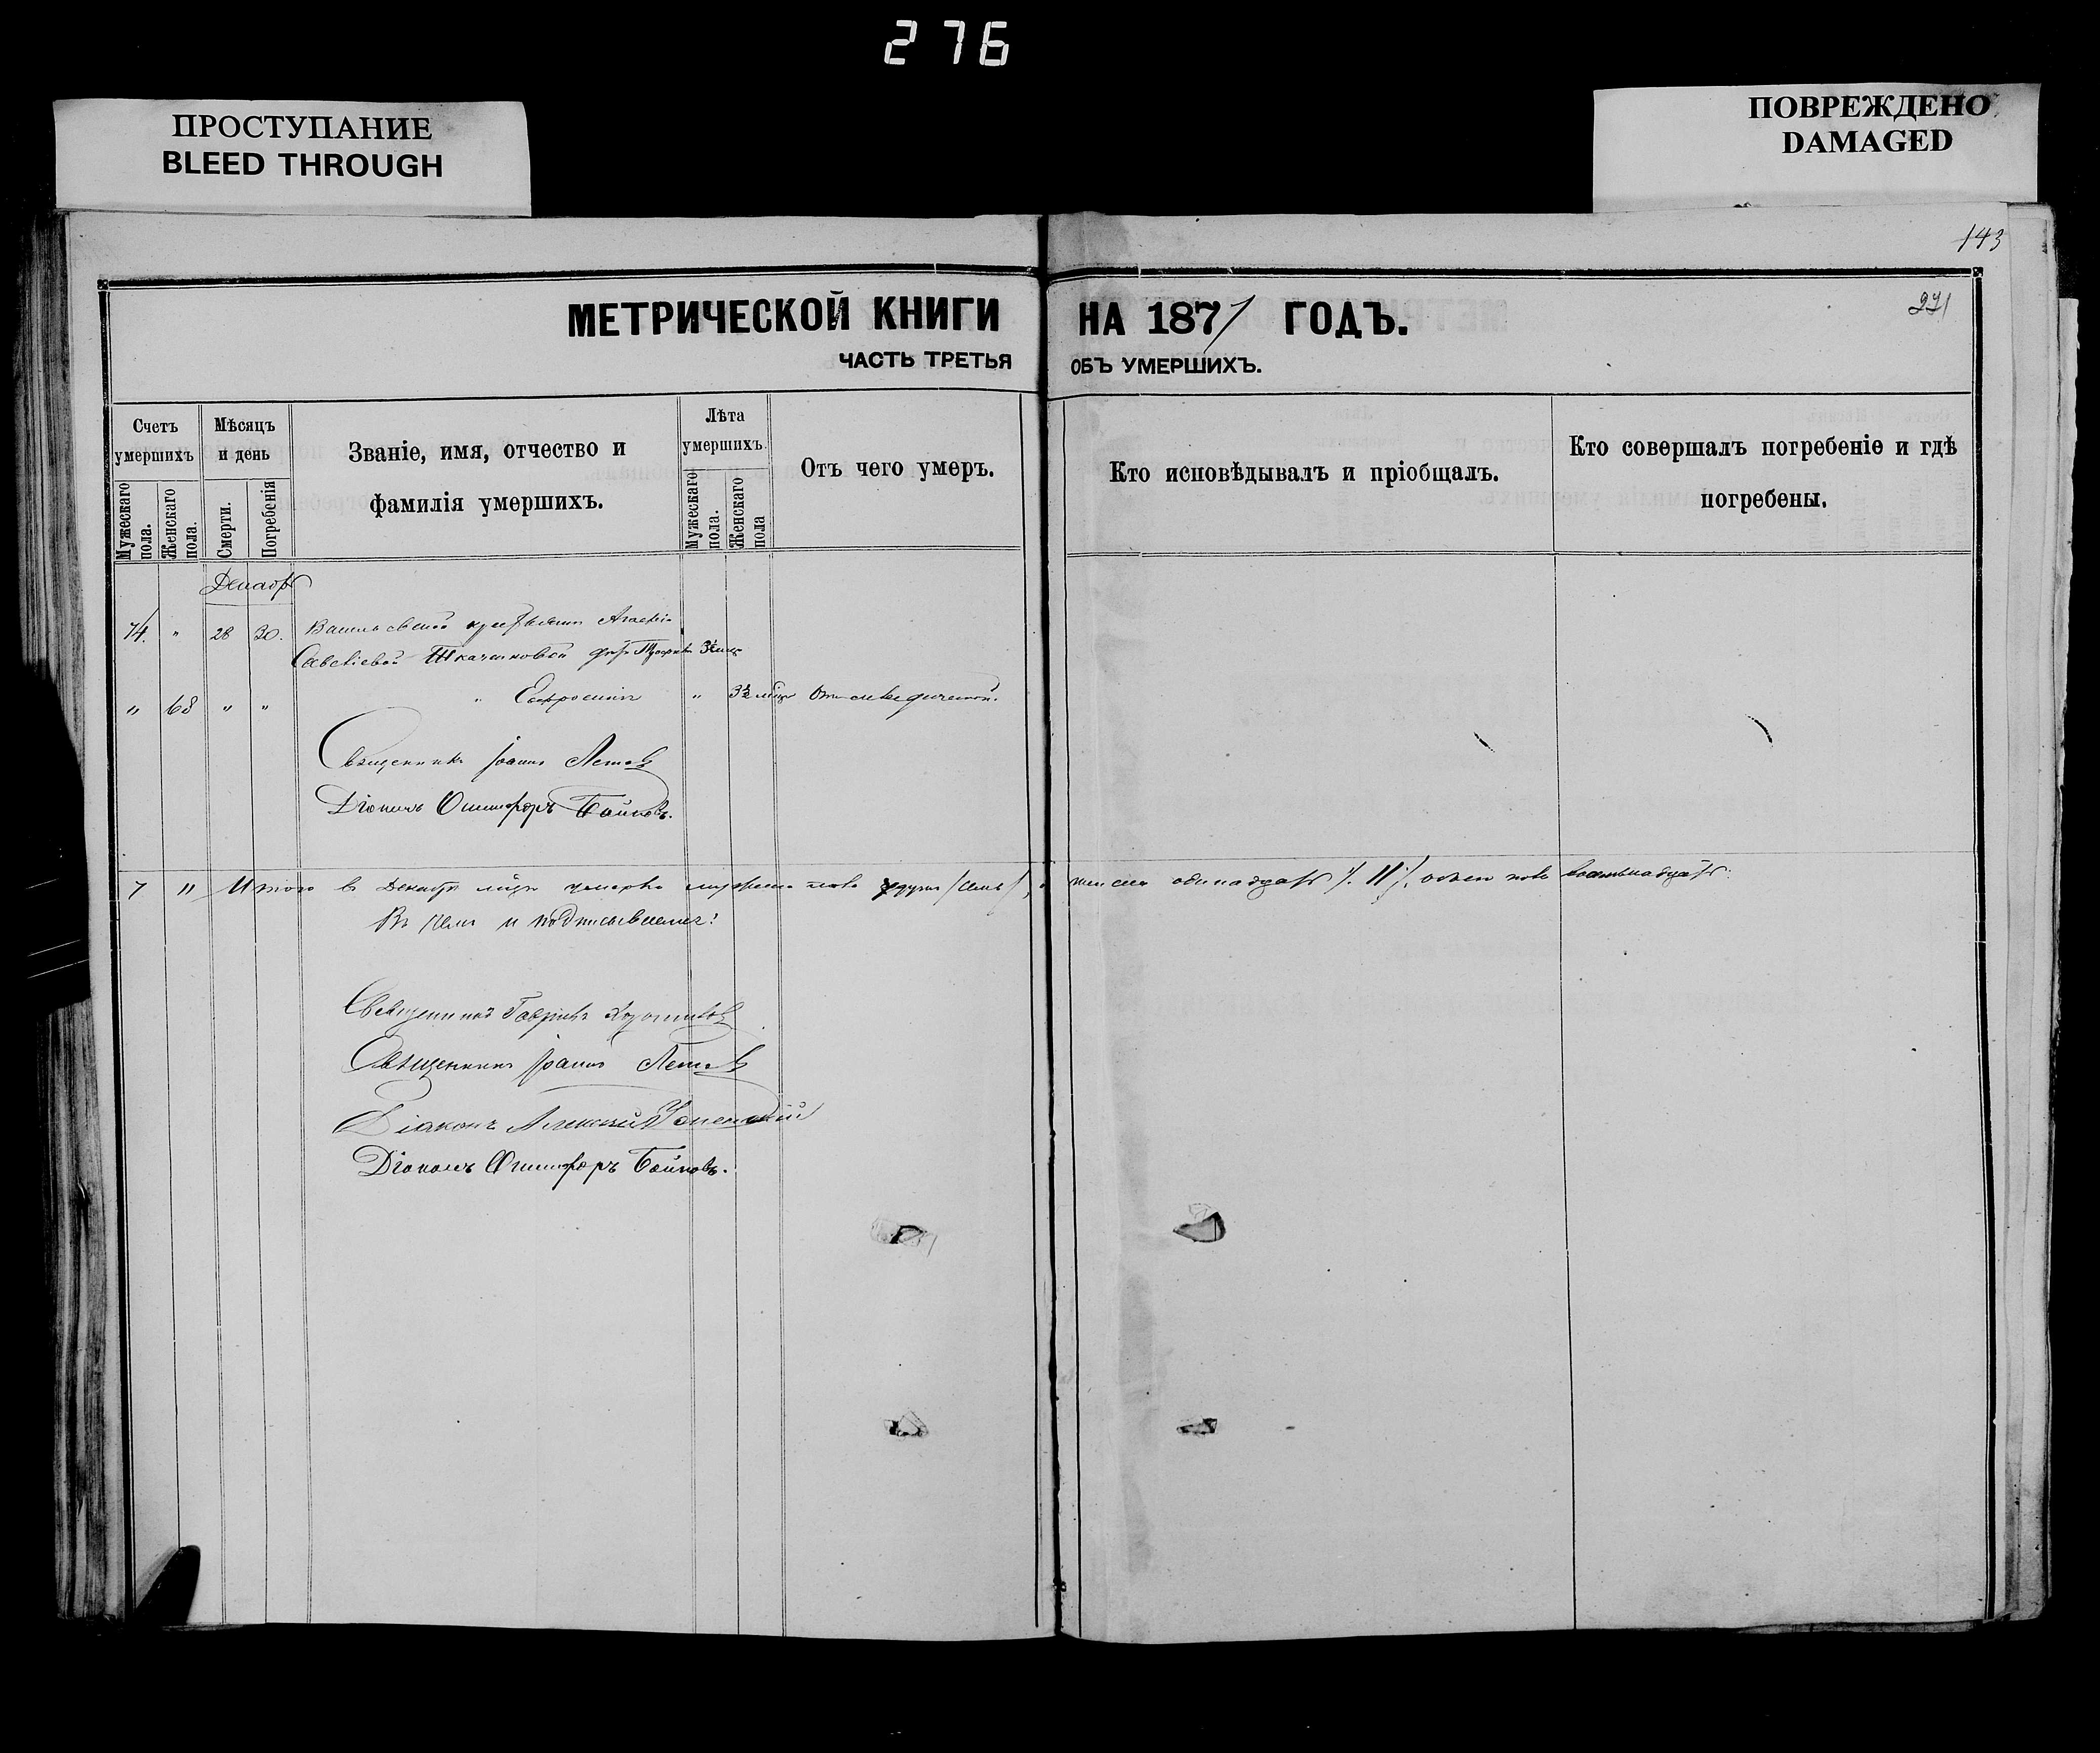 276
ПРОСТУПАНИЕ
BLEED THROUGH
ПОВРЕЖДЕНО
DAMAGED
143
271
МЕТРИЧЕСКОЙ КНИГИ НА 1871 ГОДЪ.
ЧАСТЬ ТРЕТЬЯ ОБЪ УМЕРШИХЪ.
Счетъ умершихъ
Мужескаго пола.
Женскаго пола.
Мѣсяцъ и день
Смерти.
Погребенія
Званіе, имя, отчество и фамилія умершихъ.
Лѣта умершихъ.
Мужескаго пола.
Женскаго пола
Отъ чего умеръ.
Кто исповѣдывалъ и пріобщалъ.
Кто совершалъ погребеніе и гдѣ погребены.
Декабрь
74. " 28 30.
Савеліевой Ткаченковой
" 68 " " " Евфросинія "
Священникъ Іоаннъ
Діаконъ Онисифоръ Бойковъ.
7 11 Итого въ Декабрѣ мцѣ умерло мужеска пола /семь/, женска одинадцать /.11./, обоего пола восемьнадцать.
и подписываемся:
Священникъ Гавріилъ
Священникъ Іоаннъ
Діаконъ Алексѣй
Діаконъ Онисифоръ Бойковъ.